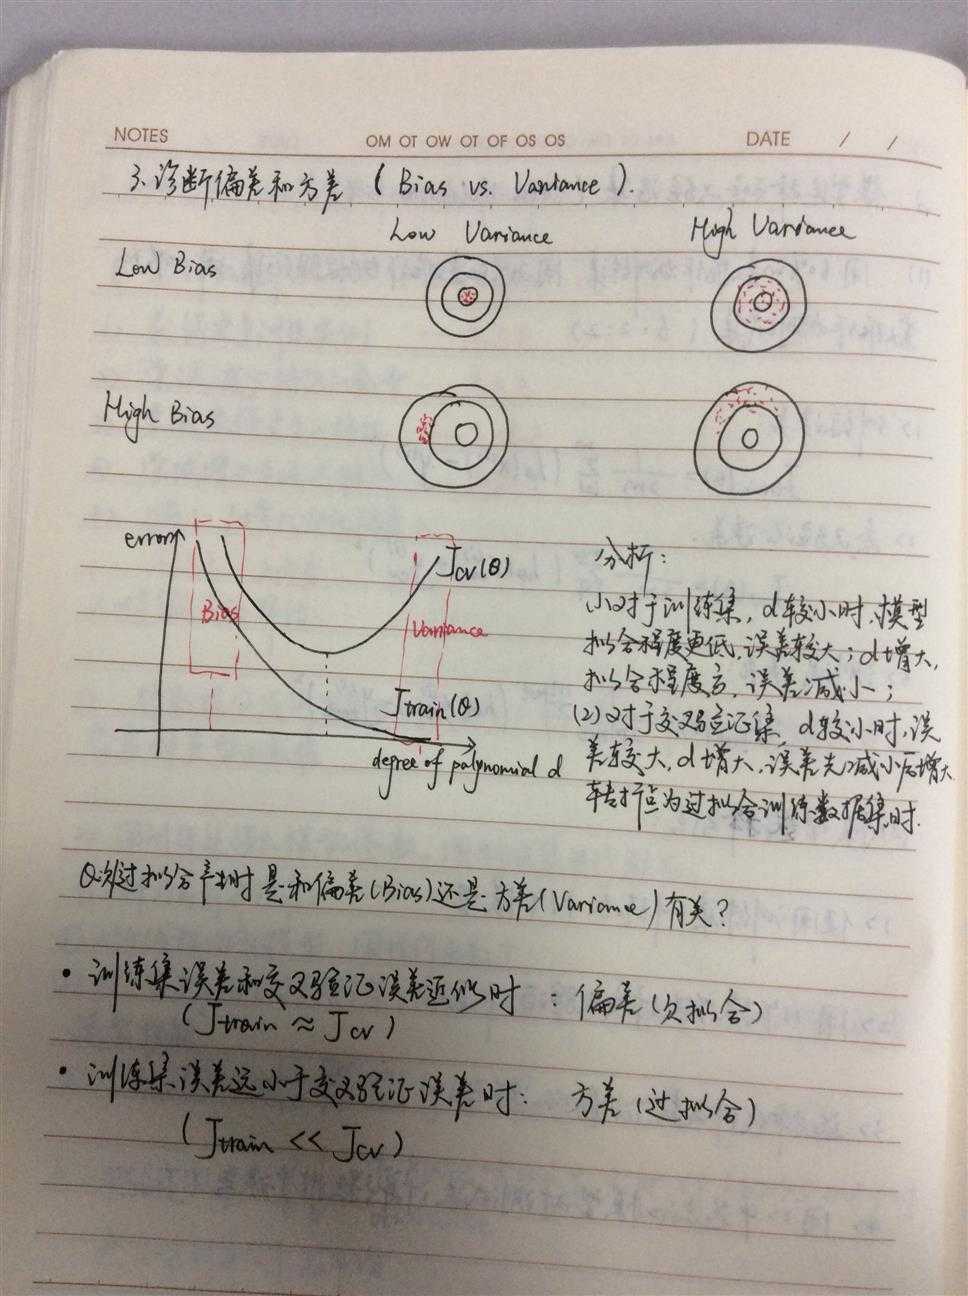 NOTES OM OT OW OT OF OS OS DATE / /
3、诊断偏差和方差 ( Bias vs. Variance ).
Low Variance High Variance
Low Bias
High Bias
error
Jcv(θ)
Bias
Variance
Jtrain(θ)
degree of polynomial d
分析:
(1)对于训练集, d较小时, 模型
拟合程度更低, 误差较大; d增大,
拟合程度高, 误差减小;
(2)对于交叉验证集, d较小时, 误
差较大, d增大, 误差先减小后增大
转折点为过拟合训练数据集时.
过拟合产生时是和偏差(Bias)还是方差(Variance)有关?
• 训练集误差和交叉验证误差近似时 : 偏差(欠拟合)
( Jtrain ≈ Jcv )
• 训练集误差远小于交叉验证误差时: 方差(过拟合)
( Jtrain << Jcv )